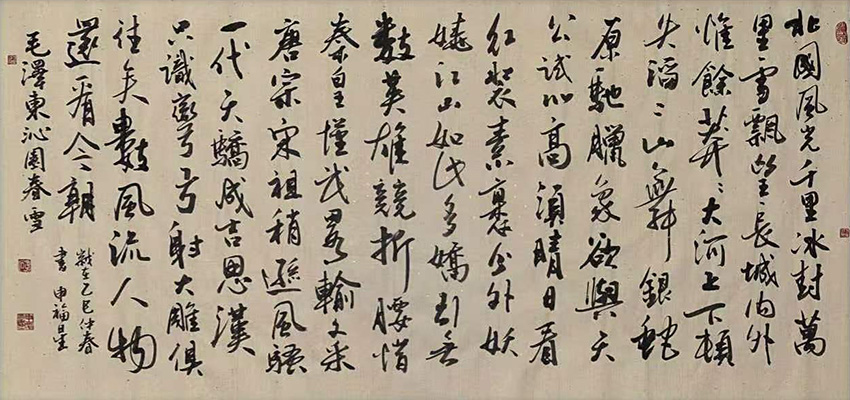 北國風光千里冰封萬
里雪飄望長城內外
惟餘莽〻大河上下頓
失滔〻山舞銀蛇
原馳臘象欲與天
公試比高須晴日看
紅裝素裹分外妖
嬈江山如此多嬌引無
數英雄競折腰惜
秦皇漢武畧輸文采
唐宗宋祖稍遜風騷
一代天驕成吉思漢
只識彎弓射大雕俱
往矣數風流人物
還看今朝
毛澤東沁園春雪
歲在乙巳仲春
書申福星